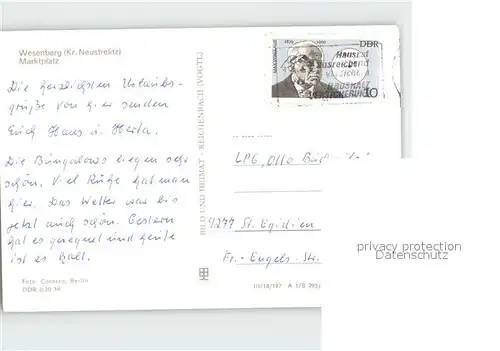 Wesenberg (Kr. Neustrelitz)
Marktplatz
Die herzlichsten Urlaubs-
grüße von hier senden
Euch Hans u. Herta.
Die Bungalows liegen sehr
schön. Viel Ruhe hat man
hier. Das Wetter war bis
jetzt auch schön. Gestern
hat es geregnet und heute
ist es kalt.
Foto: Corazza, Berlin
BILD UND HEIMAT · REICHENBACH (VOGTL)
DDR
10
Hausrat
ausreichend
versichern
HAUSHALT
VERSICHERUNG
LPG „Otto
9277 St. Egidien
Fr.-Engels-Str.
III/18/197 A 1/B
privacy protection
Datenschutz